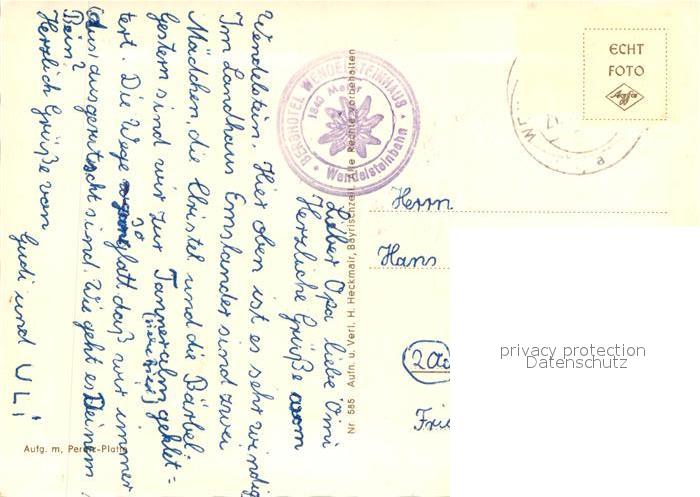 Lieber Opa liebe Omi
Herzliche Grüße vom
Wendelstein. Hier oben ist es sehr windig
Im Landhaus Emslander sind zwei
Mädchen, die Christel und die Bärbel
Gestern sind wir zur Tanneralm geklet=
tert. Die Wege so glatt daß wir immer
ausgerutscht sind. Wie geht es Deinem
Bein?
Herzlich Grüße von
Gudi und ULi
BERGHOTEL WENDELSTEINHAUS
1840 Meter
Wendelsteinbahn
Nr. 585 Aufn. u. Verl. H. Heckmair, Bayrischzell. Alle Rechte vorbehalten
ECHT
FOTO
Agfa
Herrn
Hans
Frie
privacy protection
Datenschutz
Aufg. m, Perutz-Platte